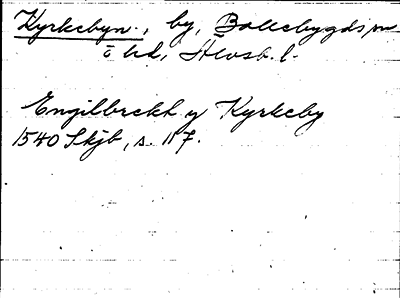 Kyrkebyn., by, Bollebygds sn
o hd, Älvsb. l.
Engilbrekt y Kyrkeby
1540 Skjb, s. 117.